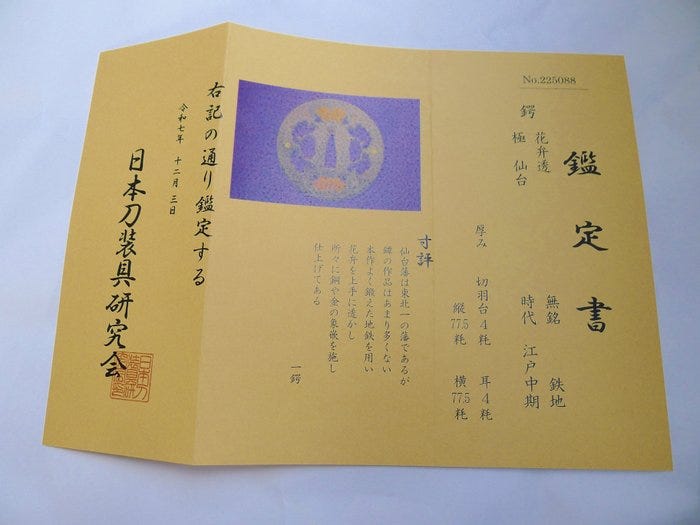 No.225088
鑑定書
鍔 花弁透
極 仙台
無銘 鉄地
時代 江戸中期
厚み 切羽台4粍 耳4粍
縦77.5粍 横77.5粍
寸評
仙台藩は東北一の藩であるが
鐔の作品はあまり多くない
本作よく鍛えた地鉄を用い
花弁を上手に透かし
所々に銅や金の象嵌を施し
仕上げてある
一鍔
右記の通り鑑定する
令和七年 十二月 三日
日本刀装具研究会